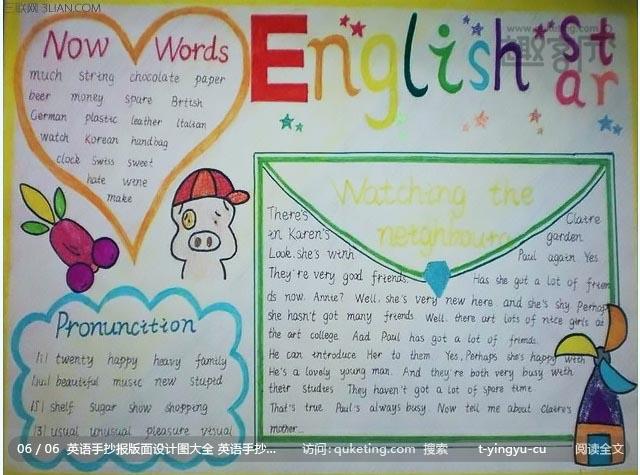 三联网 3LIAN.COM
English Star
Now Words
much string chocolate paper
beer money spare British
German plastic leather Italian
watch Korean handbag
clock Swiss sweet
hate wine
make
Watching the
neighbours
There's Claire
in Karen's garden.
Look, she's with Paul again Yes
They're very good friends. Has she got a lot of frien
ds now. Annie? Well, she's very new here and she's shy. Perhap
she hasn't got many friends Well. there art lots of nice girls at
the art college. And Paul has got a lot of friends.
He can introduce Her to them Yes, Perhaps she's happy with
He's a lovely young man. And they're both very busy with
their studies They haven't got a lot of spare time
That's true. Paul's always busy. Now tell me about Claire's
mother...
Pronuncition
[i] twenty happy heavy family
[ju:] beautiful music new stupid
[ʃ] shelf sugar show shopping
[ʒ] usual unusual pleasure visual
06 / 06 英语手抄报版面设计图大全 英语手抄... 访问: quketing.com 搜索 t-yingyu-cu 阅读全文